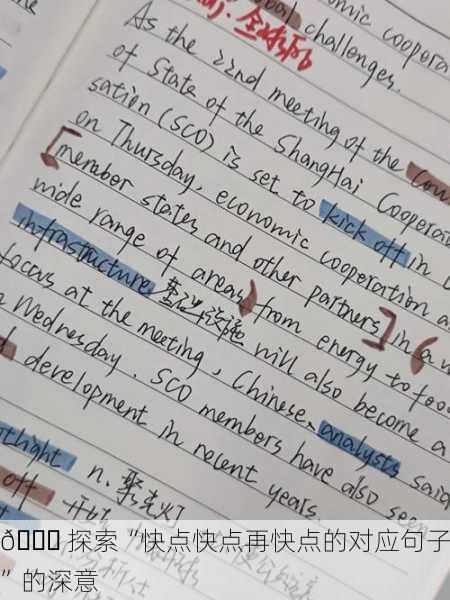 global challenges.
全球的
As the 22nd meeting of the Coun
of State of the ShangHai Cooperat
sation (SCO) is set to kick off in
on Thursday, economic cooperation a
[member states and other partners] in a w
wide range of areas) from energy to food
infrastructure 基础设施 will also become a
focus at the meeting, Chinese analysts said
Wednesday. SCO members have also seen
development in recent years.
n. 聚光灯
off 开始
探索“快点快点再快点的对应句子
”的深意